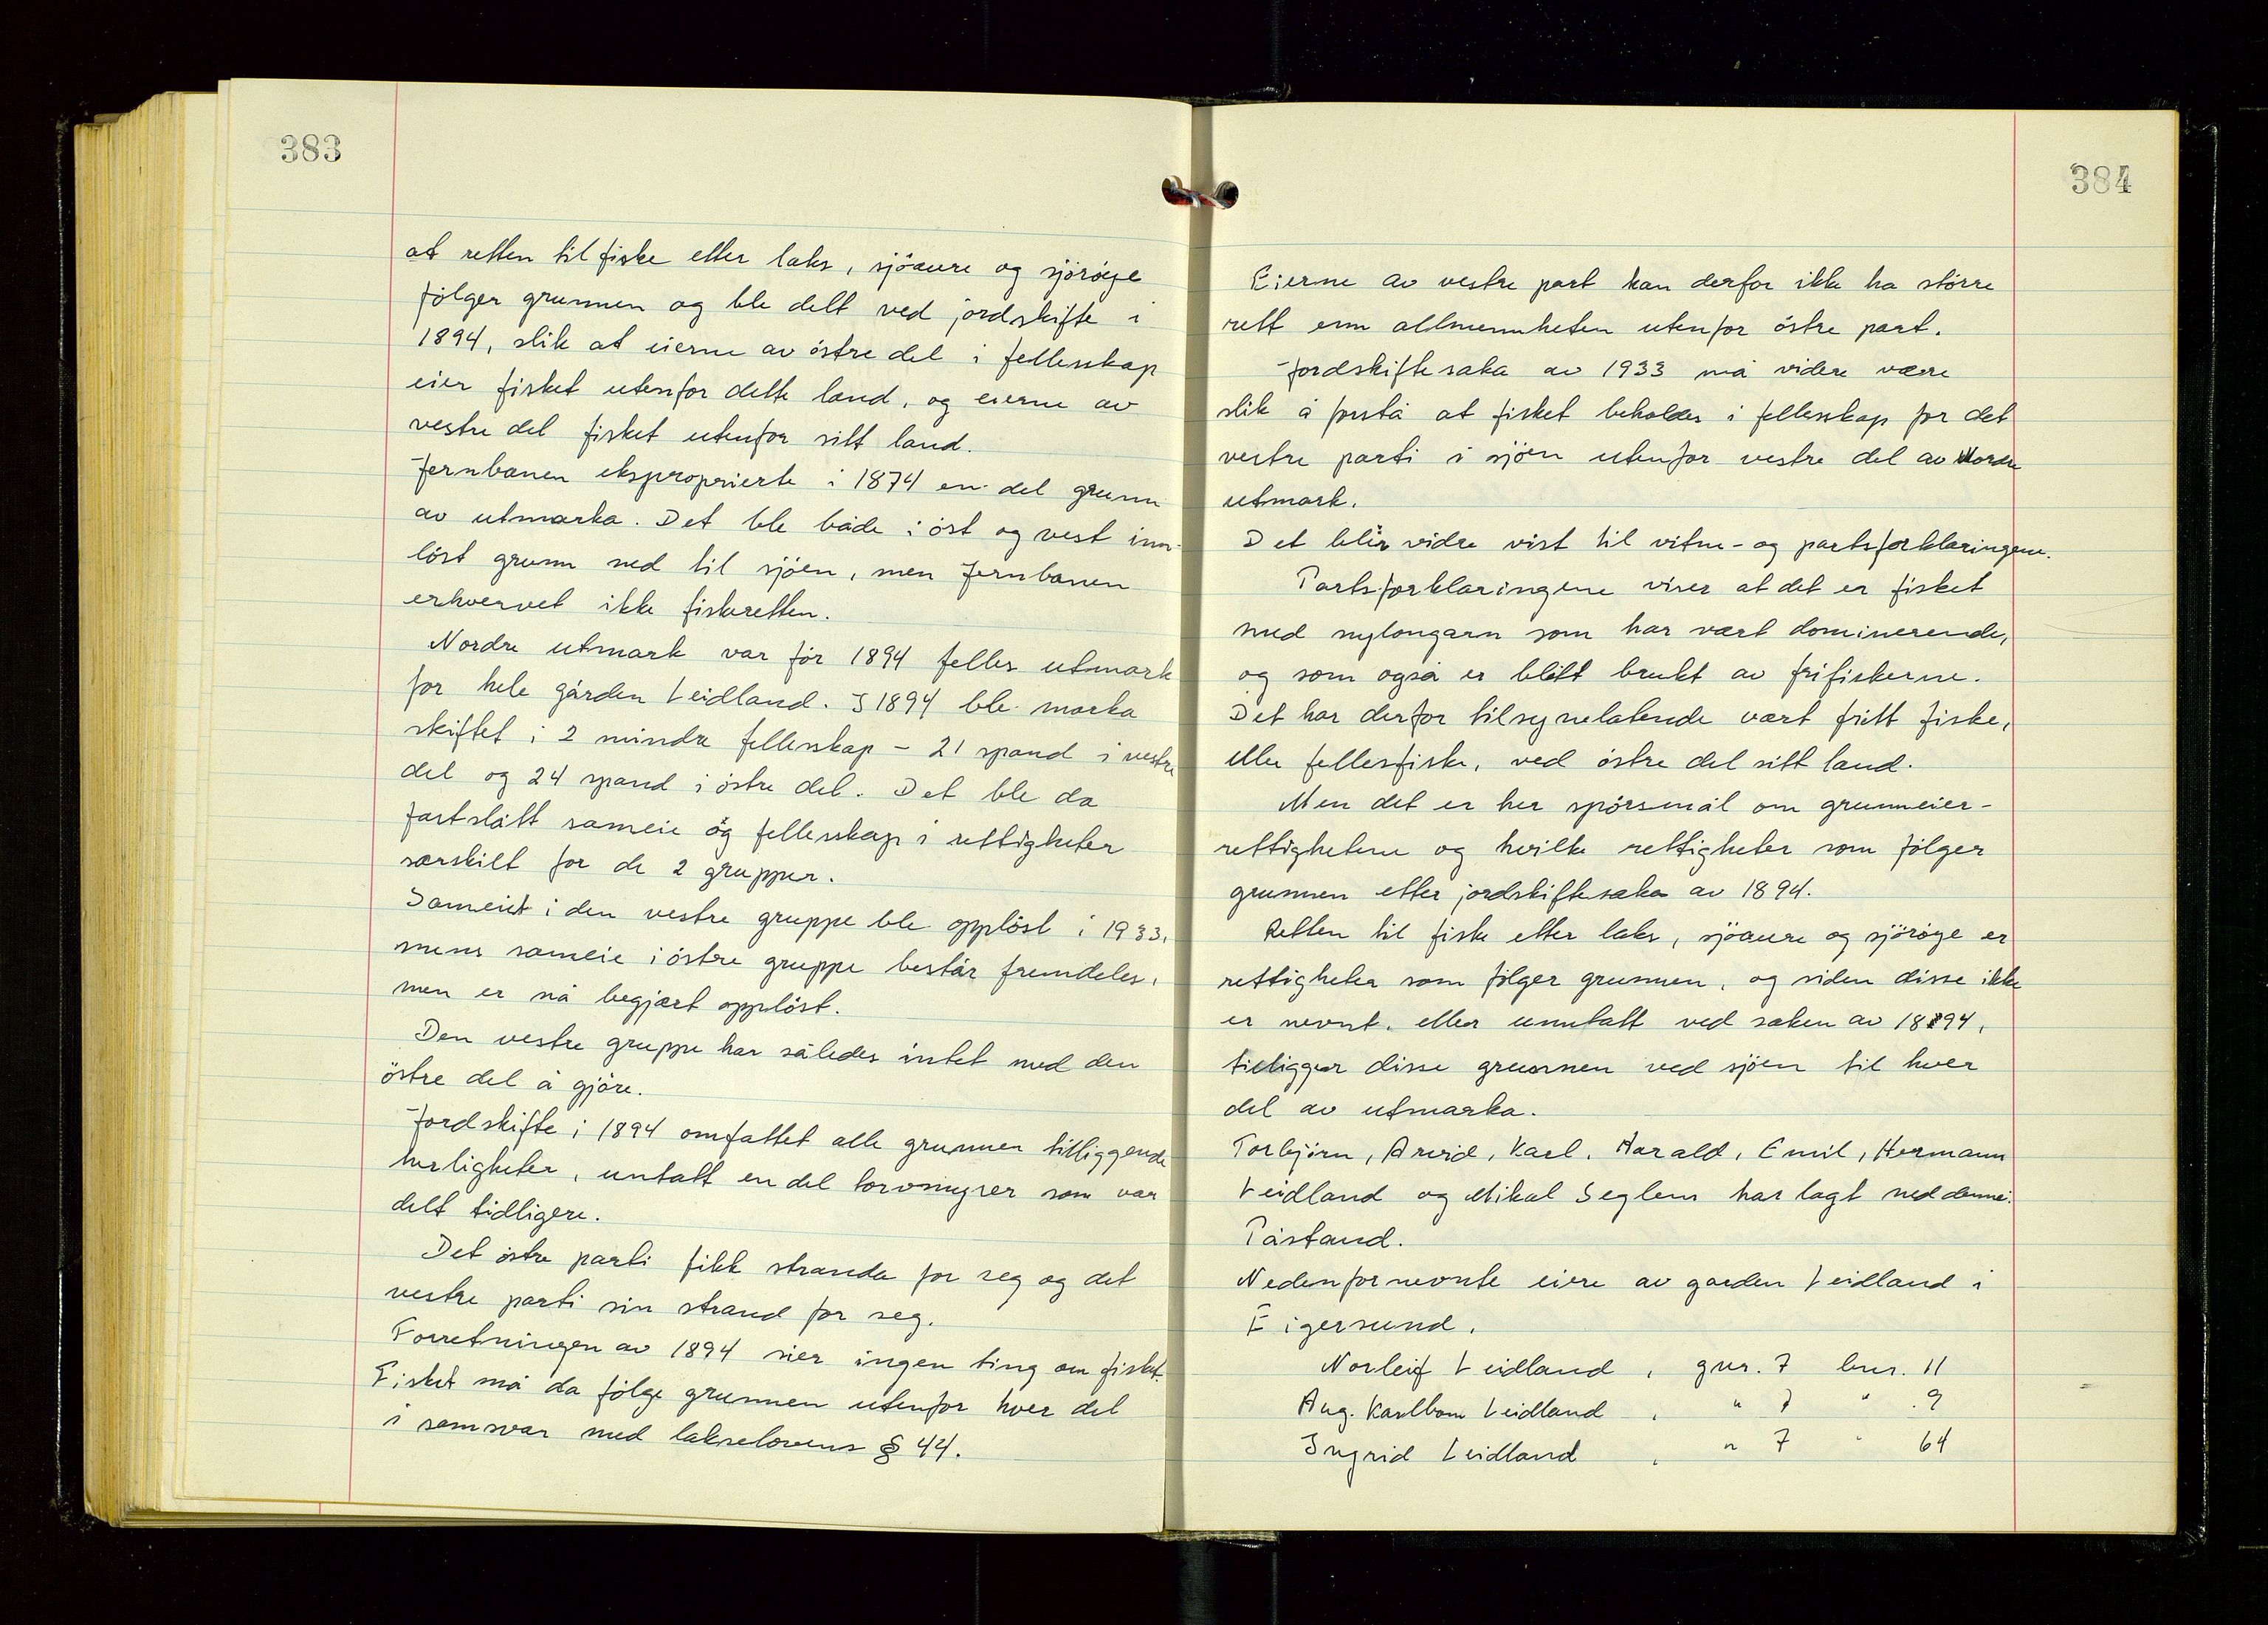 383
at retten til fiske etter laks, sjöaure og sjöröye
fölger grunnen og ble delt ved jordskifte i
1894, slik at eierne av östre del i fellesskap
eier fisket utenfor dette land, og eierne av
vestre del fisket utenfor sitt land.
Jernbanen eksproprierte i 1874 en del grunn
av utmarka. Det ble både i öst og vest inn-
löst grunn ned til sjöen, men Jernbanen
erhvervet ikke fiskeretten.
Nordre utmark var för 1894 felles utmark
for hele gården Leidland. I 1894 ble marka
skiftet i 2 mindre fellesskap – 21 spand i vestre
del og 24 spand i östre del. Det ble da
fastslått sameie og fellesskap i rettigheter
særskilt for de 2 grupper.
Sameiet i den vestre gruppe ble opplöst i 1933,
mens sameie i östre gruppe består fremdeles,
men er nå begjært opplöst.
Den vestre gruppe har således intet med den
östre del å gjöre.
Jordskifte i 1894 omfattet alle grunnen tilliggende
herligheter, untatt en del torvmyrer som var
delt tidligere.
Det östre parti fikk stranda for seg og det
vestre parti sin strand for seg.
Forretningen av 1894 sier ingen ting om fisket.
Fisket må da fölge grunnen utenfor hver del
i samsvar med lakselovens § 44.
384
Eierne av vestre part kan derfor ikke ha större
rett enn allmennheten utenfor östre part.
Jordskiftesaka av 1933 må videre være
slik å forstå at fisket beholdes i fellesskap for det
vestre parti i sjöen utenfor vestre del av Nordre
utmark.
Det blir vidre vist til vitne- og partsforklaringene.
Partsforklaringene viser at det er fisket
med nylongarn som har vært dominerende,
og som også er blitt brukt av frifiskerne.
Det har derfor tilsynelatende vært fritt fiske,
eller fellesfiske, ved östre del sitt land.
Men det er her spörsmål om grunneier-
rettighetene og hvilke rettigheter som fölger
grunnen etter jordskiftesaka av 1894.
Retten til fiske etter laks, sjöaure og sjöröye er
rettigheter som fölger grunnen, og siden disse ikke
er nevnt, eller unntatt ved saken av 1894,
tilligger disse grunnen ved sjöen til hver
del av utmarka.
Torbjörn, Arvid, Karl, Harald, Emil, Hermann
Leidland og Mikal Seglem har lagt ned denne:
Påstand.
Nedenfornevnte eiere av garden Leidland i
Eigersund.
Norleif Leidland, gnr. 7 bnr. 11
Aug. Karlbom Leidland, " 7 " 9
Ingrid Leidland, " 7 " 64